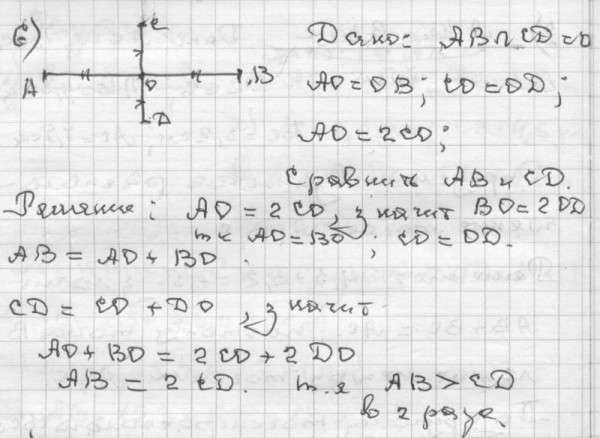 6)
C
A O B
D
Дано: AB ∩ CD = O
AO = OB; CO = OD;
AO = 2CO;
Сравнить AB и CD.
Решение: AO = 2CO, значит BO = 2OD
т.к AO = BO; CO = OD.
AB = AO + BO.
CD = CO + DO, значит
AO + BO = 2CO + 2DO
AB = 2CD. т.е AB > CD
в 2 раза